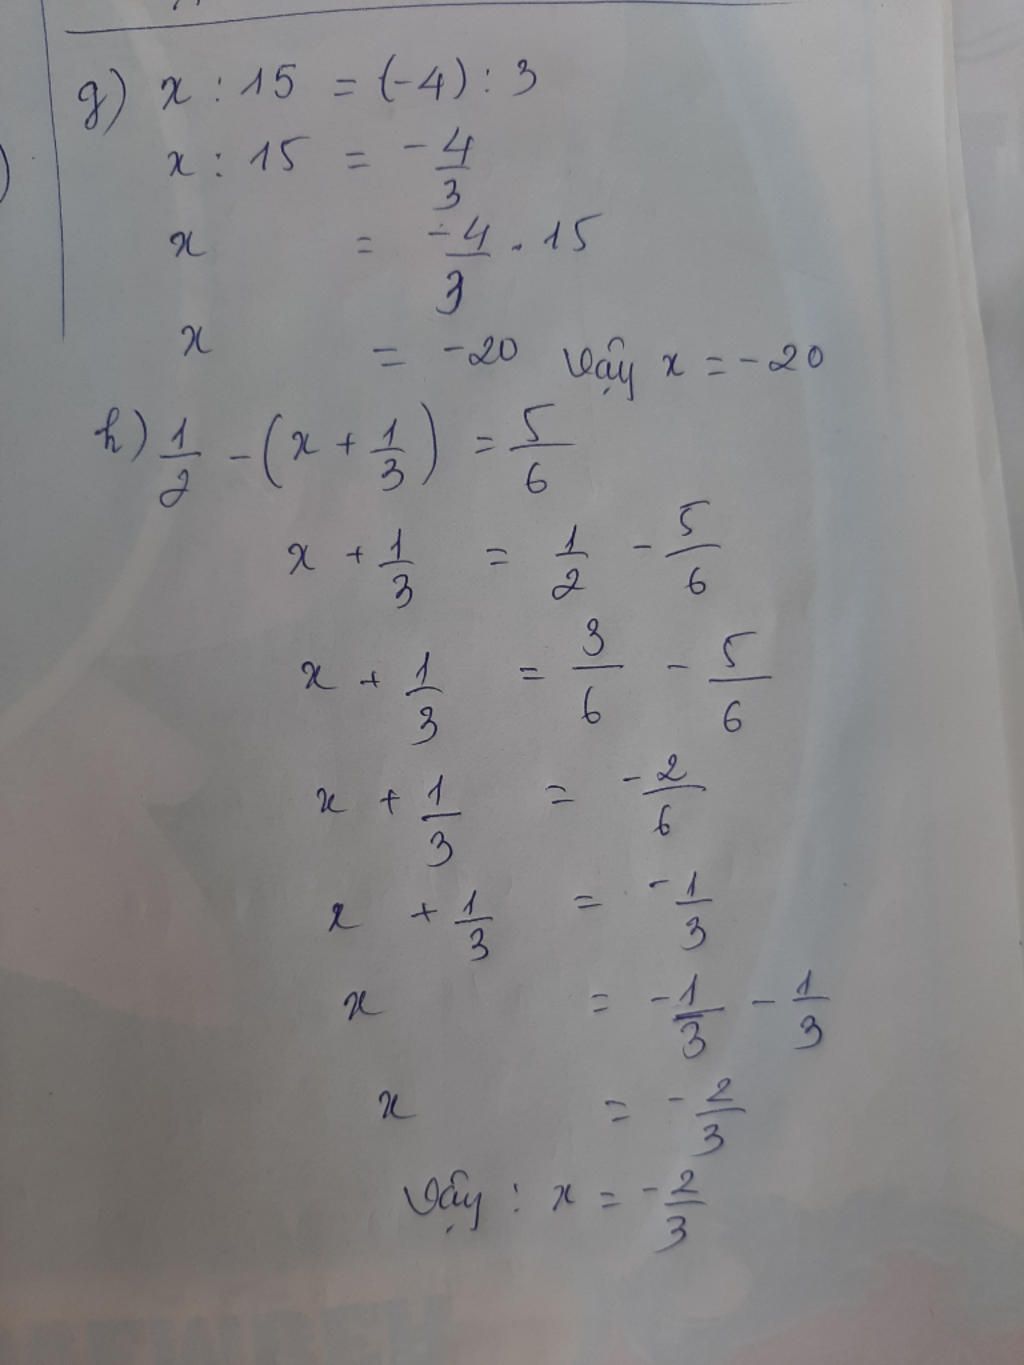 g) x : 15 = (-4) : 3
x : 15 = -4/3
x = -4/3 . 15
x = -20 Vậy x = -20
h) 1/2 - (x + 1/3) = 5/6
x + 1/3 = 1/2 - 5/6
x + 1/3 = 3/6 - 5/6
x + 1/3 = -2/6
x + 1/3 = -1/3
x = -1/3 - 1/3
x = -2/3
Vậy : x = -2/3